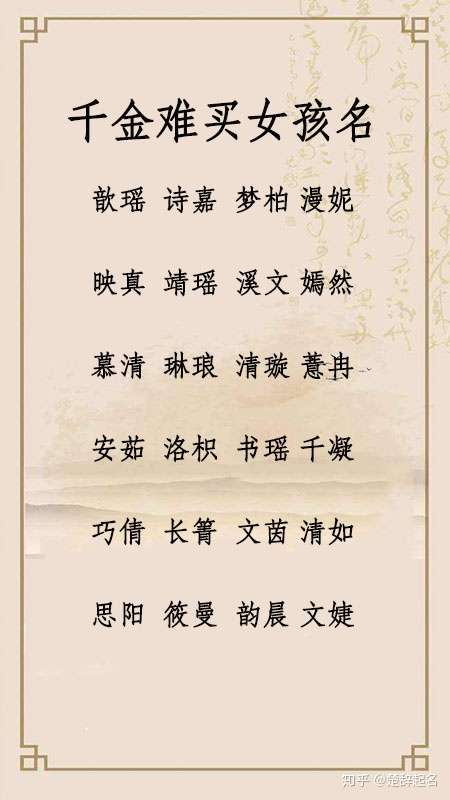 千金难买女孩名
歆瑶 诗嘉 梦柏 漫妮
映真 靖瑶 溪文 嫣然
慕清 琳琅 清璇 薏冉
安茹 洛枳 书瑶 千凝
巧倩 长箐 文茵 清如
思阳 筱曼 韵晨 文婕
知乎 @楚辞起名